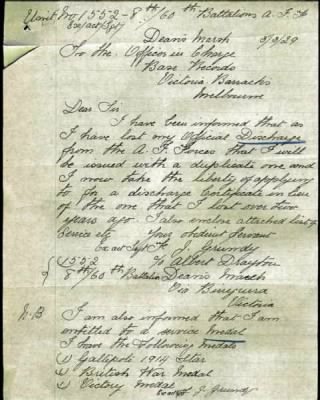 Unit No 1552 - 8th/60th Battalions A.I.F
Deans Marsh
To the Officer in Charge
Base Records
Victoria Barracks
Melbourne
Dear Sir
I have been informed that as
I have lost my Official Discharge
from the A.I. Forces that I will
be issued with a duplicate one and
I now take the liberty of applying
to for a discharge Certificate in lieu
of the one that I lost over two
years ago. I also enclose attached list of
Service etc. Your obdient Servant
J. Grundy
1552 c/ Albert Drayton
8th/60th Battalion Deans Marsh
Via Birregurra
Victoria
N.B I am also informed that I am
entitled to a service medal
I have the following medals
(1) Gallipoli 1914 Star
(2) British War Medal
(3) Victory Medal
J Grundy